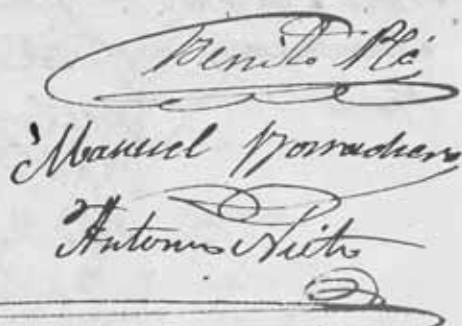 Benito Plá
Manuel Borrachero
Antonio Nieto